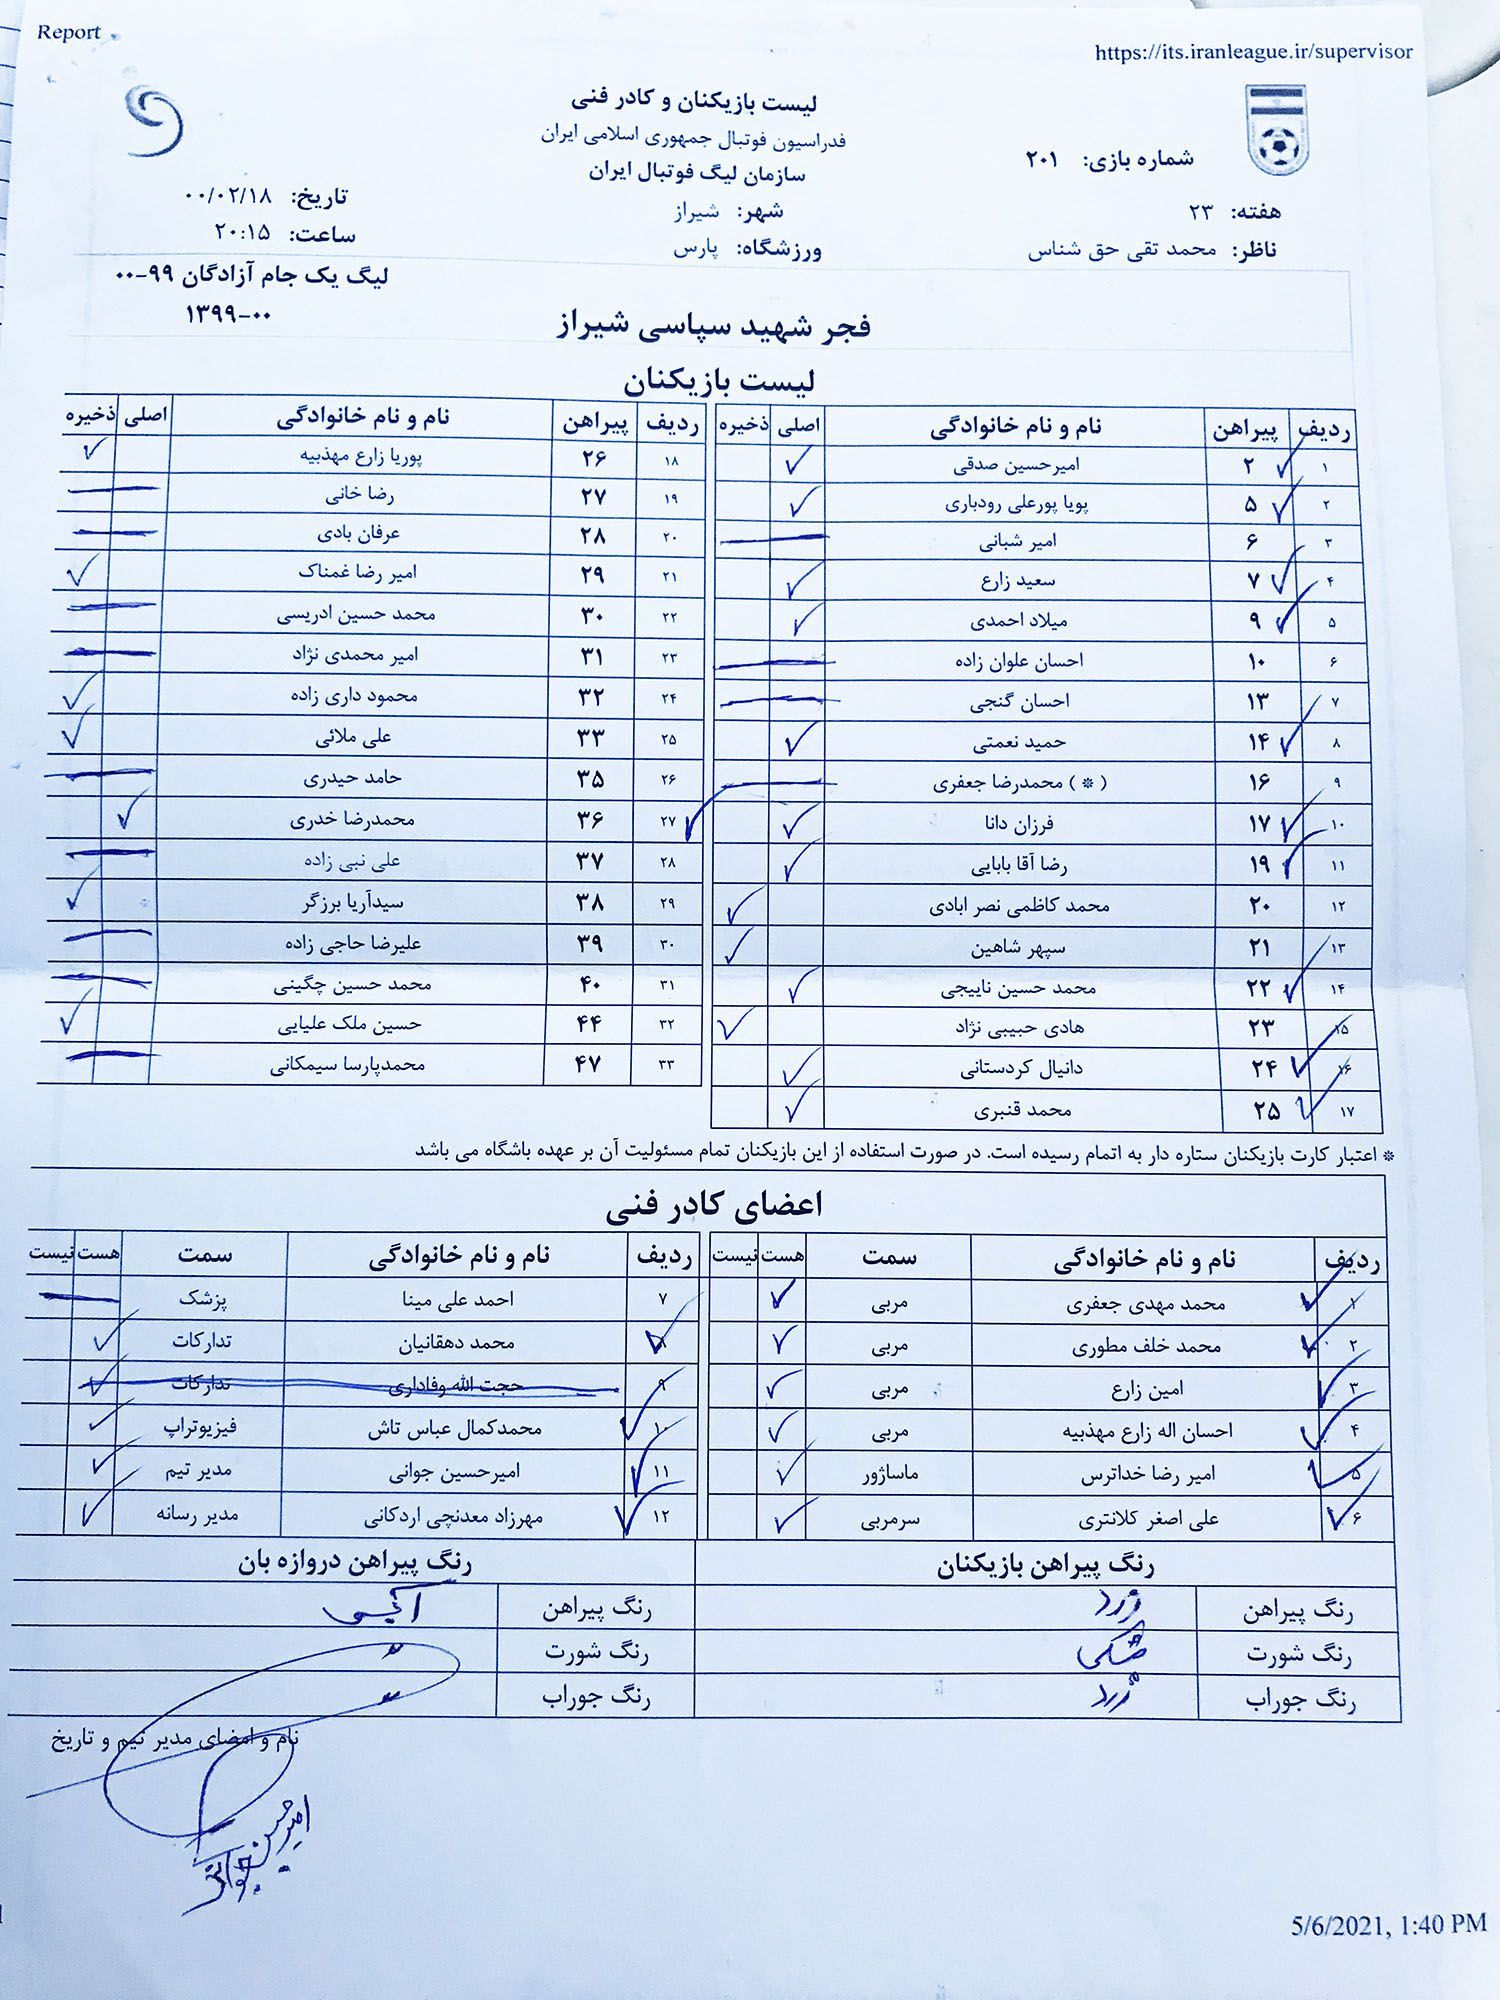 Report
https://its.iranleague.ir/supervisor
لیست بازیکنان و کادر فنی
فدراسیون فوتبال جمهوری اسلامی ایران
سازمان لیگ فوتبال ایران
شماره بازی: ۲۰۱
هفته: ۲۳
شهر: شیراز
تاریخ: ۰۰/۰۲/۱۸
ناظر: محمد تقی حق شناس
ورزشگاه: پارس
ساعت: ۲۰:۱۵
لیگ یک جام آزادگان ۹۹-۰۰
۱۳۹۹-۰۰
فجر شهید سپاسی شیراز
لیست بازیکنان
ردیف پیراهن نام و نام خانوادگی اصلی ذخیره
۱ ۲ امیرحسین صدقی ✓
۲ ۵ پویا پورعلی رودباری ✓
۳ ۶ امیر شبانی
۴ ۷ سعید زارع ✓
۵ ۹ میلاد احمدی ✓
۶ ۱۰ احسان علوان زاده
۷ ۱۳ احسان گنجی
۸ ۱۴ حمید نعمتی ✓
۹ ۱۶ (*) محمدرضا جعفری
۱۰ ۱۷ فرزان دانا ✓
۱۱ ۱۹ رضا آقا بابایی ✓
۱۲ ۲۰ محمد کاظمی نصر ابادی ✓
۱۳ ۲۱ سپهر شاهین ✓
۱۴ ۲۲ محمد حسین ناییجی ✓
۱۵ ۲۳ هادی حبیبی نژاد ✓
۱۶ ۲۴ دانیال کردستانی ✓
۱۷ ۲۵ محمد قنبری ✓
ردیف پیراهن نام و نام خانوادگی اصلی ذخیره
۱۸ ۲۶ پوریا زارع مهذبیه ✓
۱۹ ۲۷ رضا خانی
۲۰ ۲۸ عرفان بادی
۲۱ ۲۹ امیر رضا غمناک ✓
۲۲ ۳۰ محمد حسین ادریسی
۲۳ ۳۱ امیر محمدی نژاد
۲۴ ۳۲ محمود داری زاده ✓
۲۵ ۳۳ علی ملائی ✓
۲۶ ۳۵ حامد حیدری
۲۷ ۳۶ محمدرضا خدری ✓
۲۸ ۳۷ علی نبی زاده
۲۹ ۳۸ سیدآریا برزگر ✓
۳۰ ۳۹ علیرضا حاجی زاده
۳۱ ۴۰ محمد حسین چگینی
۳۲ ۴۴ حسین ملک علیایی ✓
۳۳ ۴۷ محمدپارسا سیمکانی
* اعتبار کارت بازیکنان ستاره دار به اتمام رسیده است. در صورت استفاده از این بازیکنان تمام مسئولیت آن بر عهده باشگاه می باشد
اعضای کادر فنی
ردیف نام و نام خانوادگی سمت هست نیست
۱ محمد مهدی جعفری مربی ✓
۲ محمد خلف مطوری مربی ✓
۳ امین زارع مربی ✓
۴ احسان اله زارع مهذبیه مربی ✓
۵ امیر رضا خداترس ماساژور ✓
۶ علی اصغر کلانتری سرمربی ✓
ردیف نام و نام خانوادگی سمت هست نیست
۷ احمد علی مینا پزشک
۸ محمد دهقانیان تدارکات ✓
۹ حجت الله وفاداری تدارکات ✓
۱۰ محمدکمال عباس تاش فیزیوتراپ ✓
۱۱ امیرحسین جوانی مدیر تیم ✓
۱۲ مهرزاد معدنچی اردکانی مدیر رسانه ✓
رنگ پیراهن بازیکنان
رنگ پیراهن زرد
رنگ شورت مشکی
رنگ جوراب زرد
رنگ پیراهن دروازه بان
رنگ پیراهن آبی
رنگ شورت "
رنگ جوراب "
نام و امضای مدیر تیم و تاریخ
امیرحسین جوانی
5/6/2021, 1:40 PM